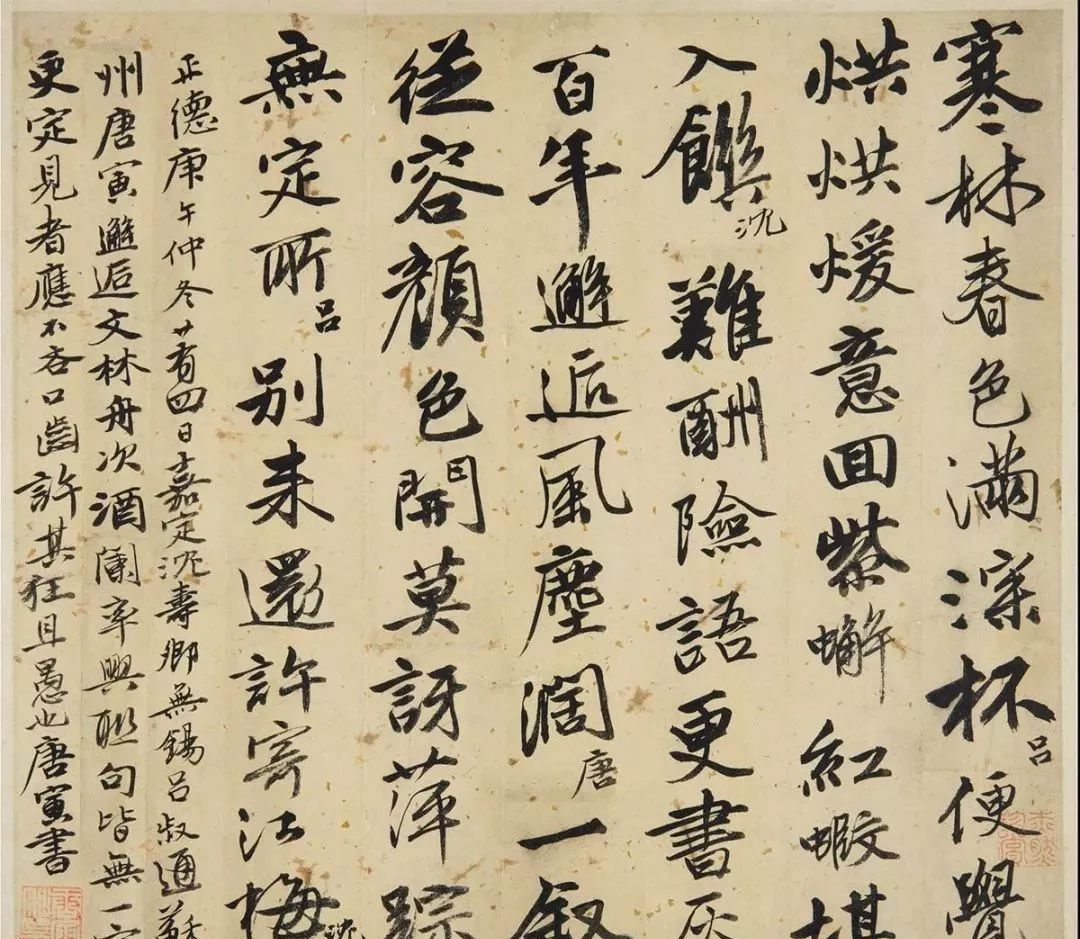 寒林春色滿深杯吕便覺
烘烘煖意回紫蠏紅蝦堪
入饌沈難酬險語更書灰
百年邂逅風塵濶唐一叙
從容顏色開莫訝萍踪
無定所吕别來還許寄江梅沈
正德庚午仲冬廿有四日嘉定沈壽卿無錫吕叔通蘇
州唐寅邂逅文林舟次酒闌率興聯句皆無一字
更定見者應不吝口齒許其狂且愚也唐寅書